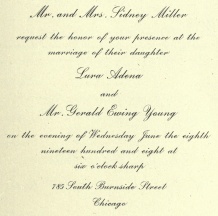 Mr. and Mrs. Sidney Miller
request the honor of your presence at the
marriage of their daughter
Lura Adena
and
Mr. Gerald Ewing Young
on the evening of Wednesday June the eighth
nineteen hundred and eight at
six o'clock sharp
785 South Burnside Street
Chicago